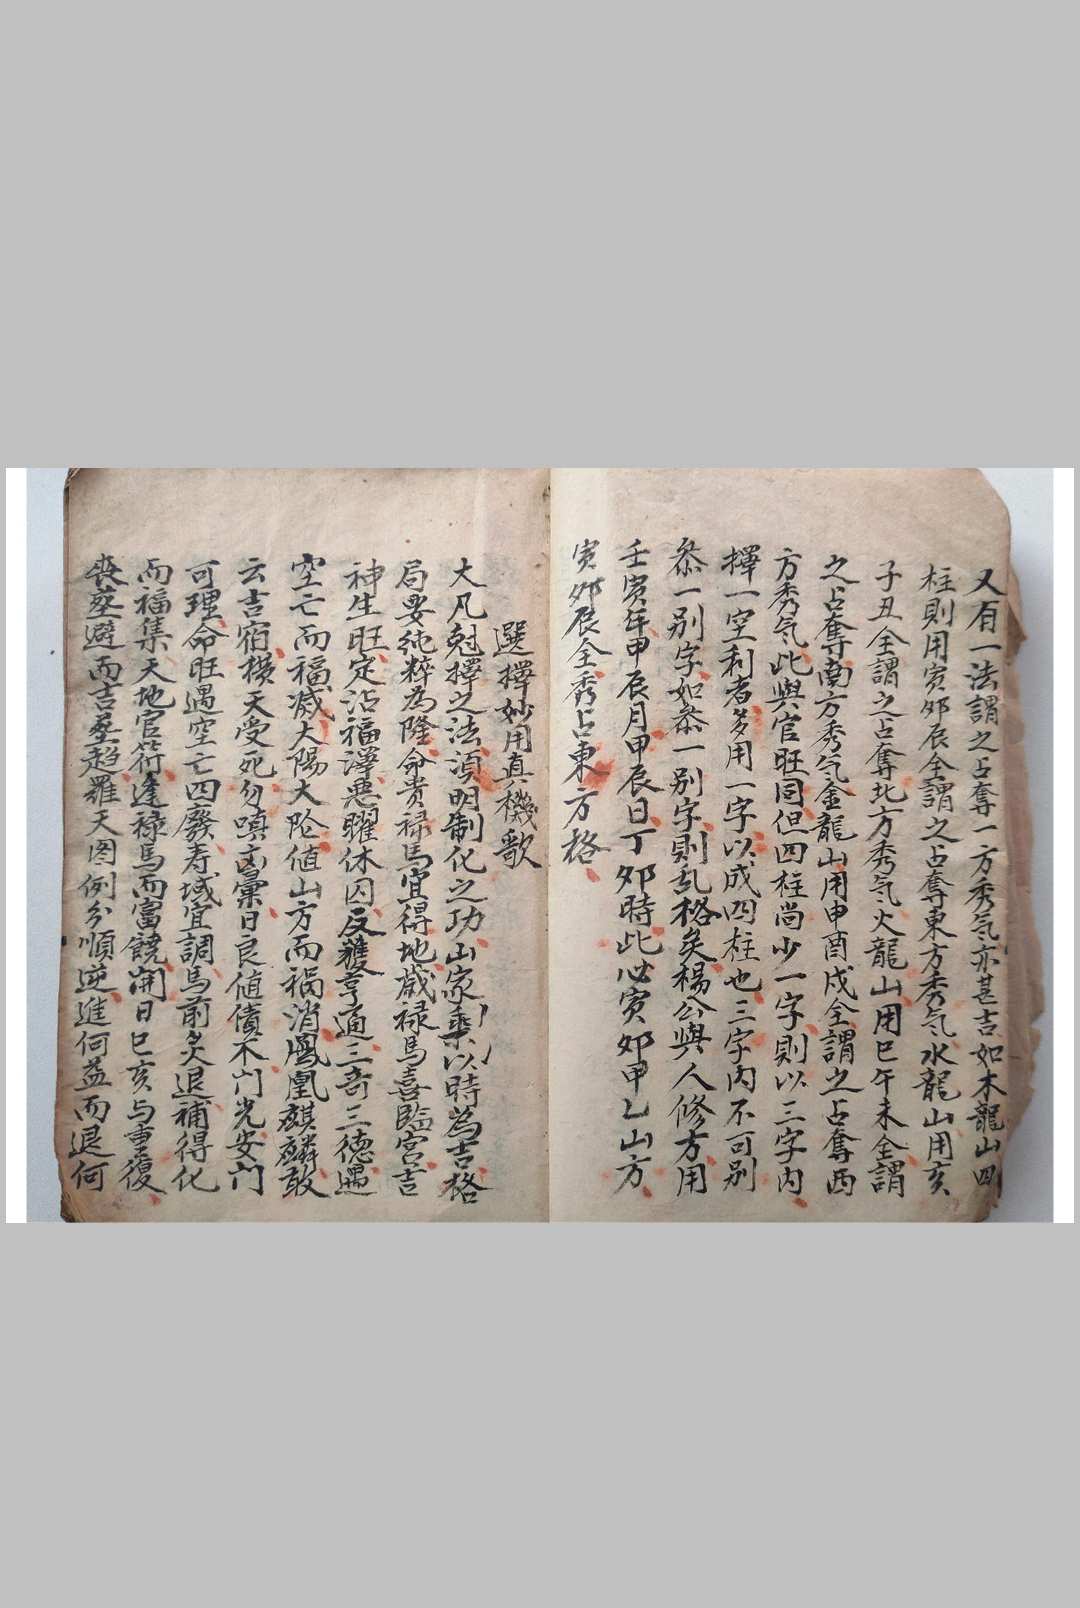 又有一法謂之占奪一方秀気亦甚吉如木龍山四
柱則用寅夘辰全謂之占奪東方秀気水龍山用亥
子丑全謂之占奪北方秀気火龍山用巳午未全謂
之占奪南方秀気金龍山用申酉戍全謂之占奪西
方秀気此與官旺同但四柱尚少一字則以三字内
擇一空利者多用一字以成四柱也三字内不可别
叅一别字如叅一别字則乱格矣楊公與人修方用
壬寅年甲辰月甲辰日丁夘時此必寅夘甲乙山方
寅夘辰全秀占東方格
選擇妙用真機歌
大凡尅擇之法湏明制化之功山家乘以時為吉格
局要純粹為隆命貴禄馬宜得地歲禄馬喜臨宮吉
神生旺定沾福澤惡曜休囚反獲亨通三竒三德遇
空亡而福减太陽太阴值山方而禍消鳳凰麒麟敢
云吉宿横天受死勿嗔凶彙日良值债木门光安门
可理命旺遇空亡四廢寿域宜調馬前炙退補得化
而福集天地官符逢禄馬而富饒開日巳亥与重復
喪塟避而吉塟超羅天図例分順逆進何益而退何